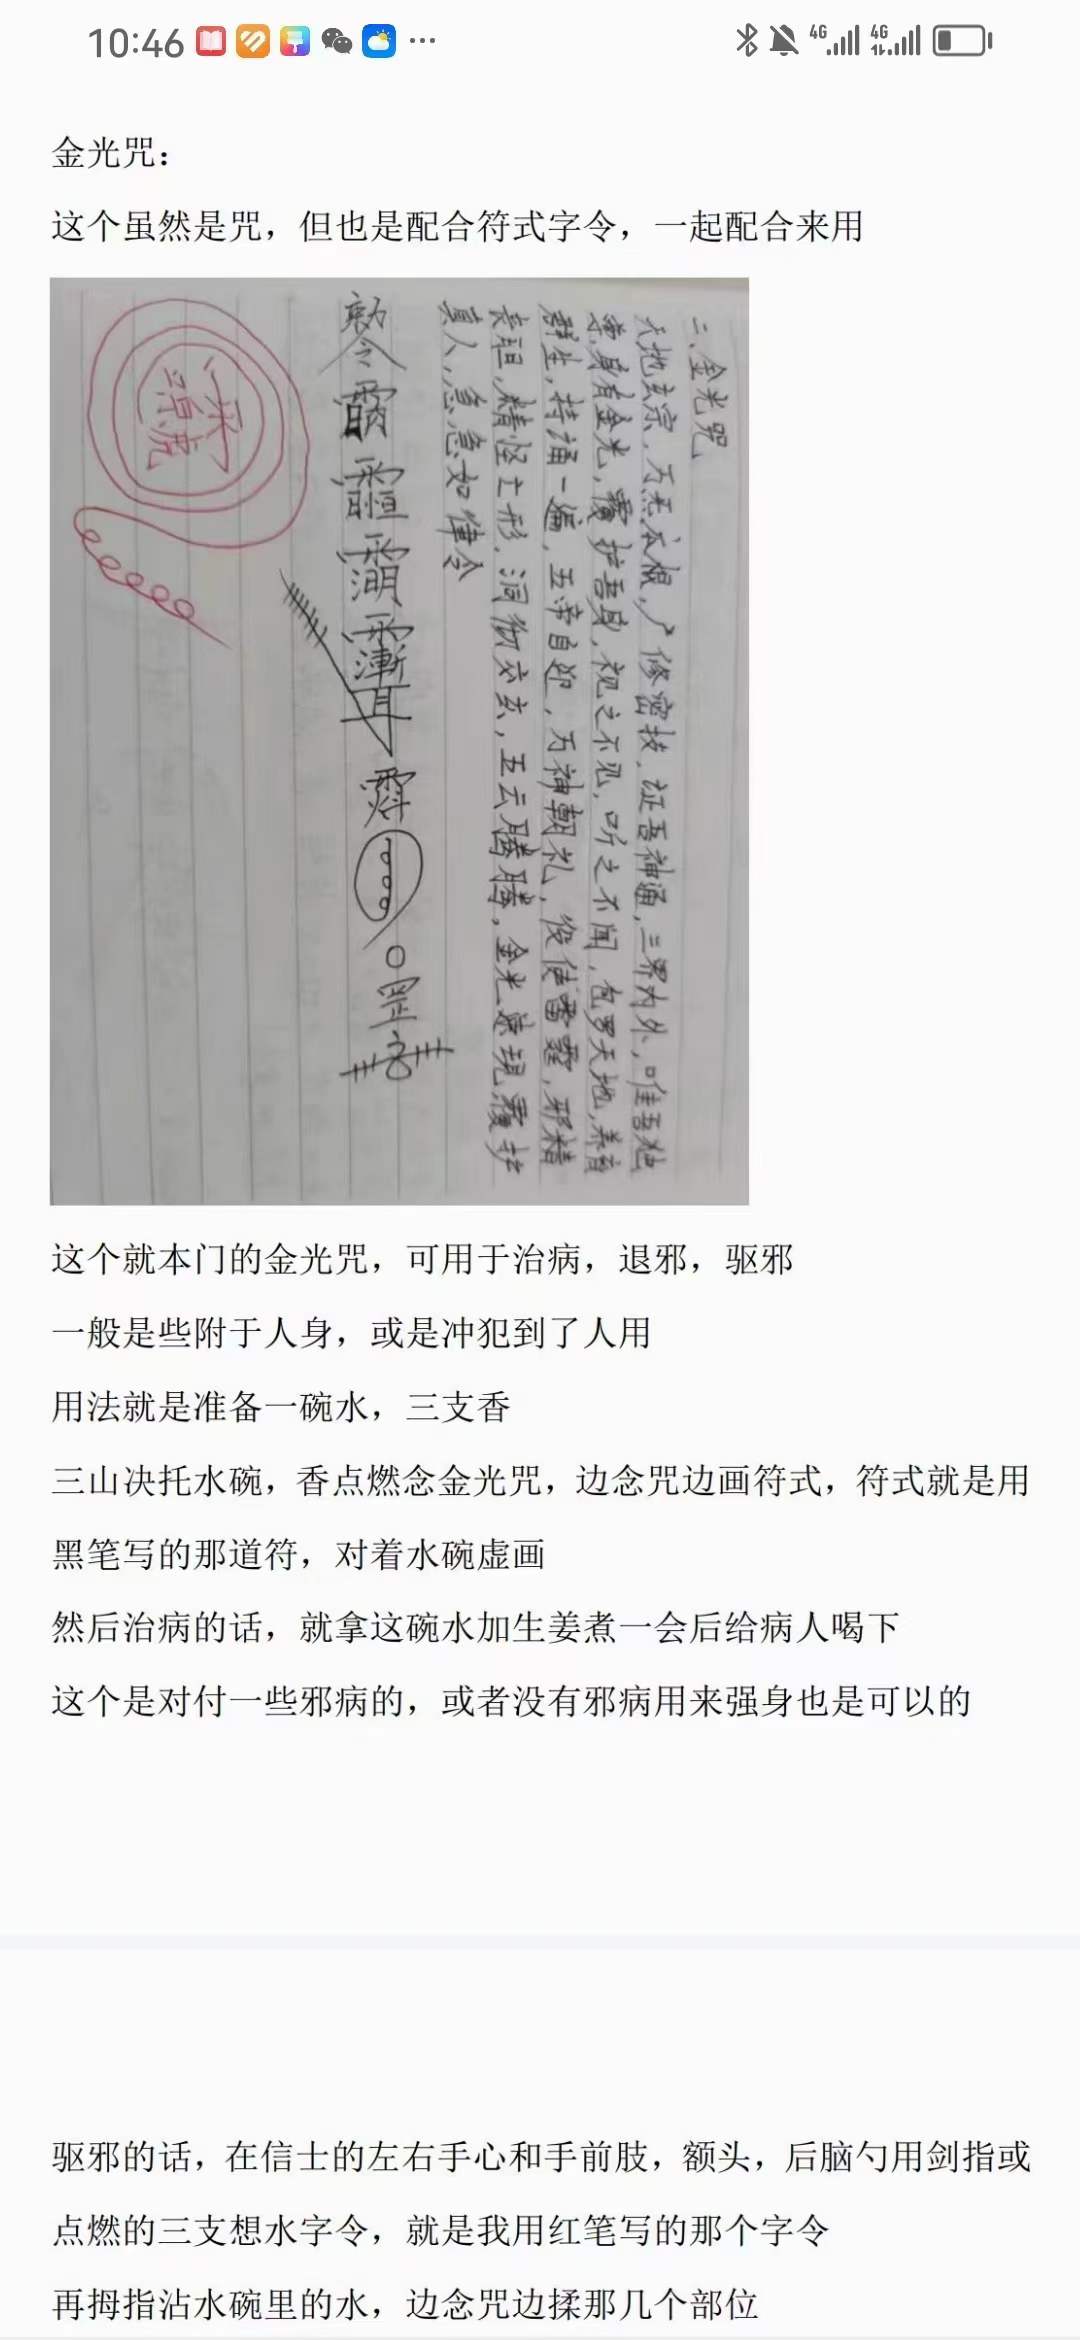 10:46
4G 4G
金光咒：
这个虽然是咒，但也是配合符式字令，一起配合来用
二、金光咒
天地玄宗，万炁本根，广修密技，证吾神通，三界内外，唯吾独
尊，身有金光，覆护吾身，视之不见，听之不闻，包罗天地，养育
群生，持诵一遍，五帝自迎，万神朝礼，役使雷霆，邪精
丧胆，精怪亡形，洞彻交玄，五云腾腾，金光速现覆护
真人，急急如律令
这个就本门的金光咒，可用于治病，退邪，驱邪
一般是些附于人身，或是冲犯到了人用
用法就是准备一碗水，三支香
三山决托水碗，香点燃念金光咒，边念咒边画符式，符式就是用
黑笔写的那道符，对着水碗虚画
然后治病的话，就拿这碗水加生姜煮一会后给病人喝下
这个是对付一些邪病的，或者没有邪病用来强身也是可以的
驱邪的话，在信士的左右手心和手前肢，额头，后脑勺用剑指或
点燃的三支想水字令，就是我用红笔写的那个字令
再拇指沾水碗里的水，边念咒边揉那几个部位